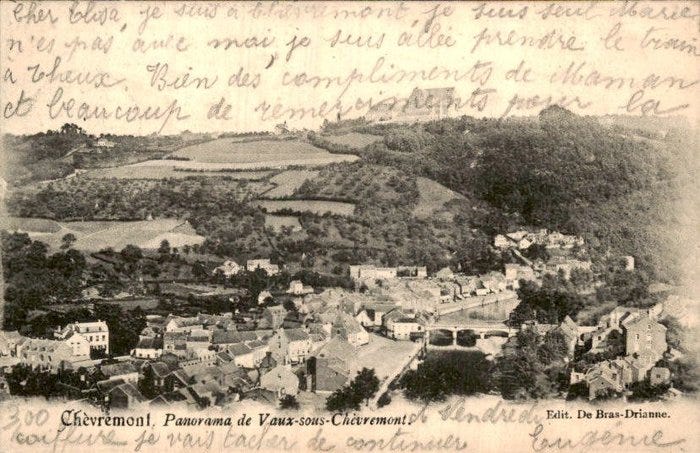 Cher Elisa, je suis à Chèvremont je suis seul Marie
n'es pas avec moi je suis allée prendre le train
à Theux Bien des compliments de Maman
et beaucoup de remerciements pour la
Chèvremont. Panorama de Vaux-sous-Chèvremont.
Edit. De Bras-Drianne.
et Vendredi
coiffure je vais tacher de continuer Eugénie